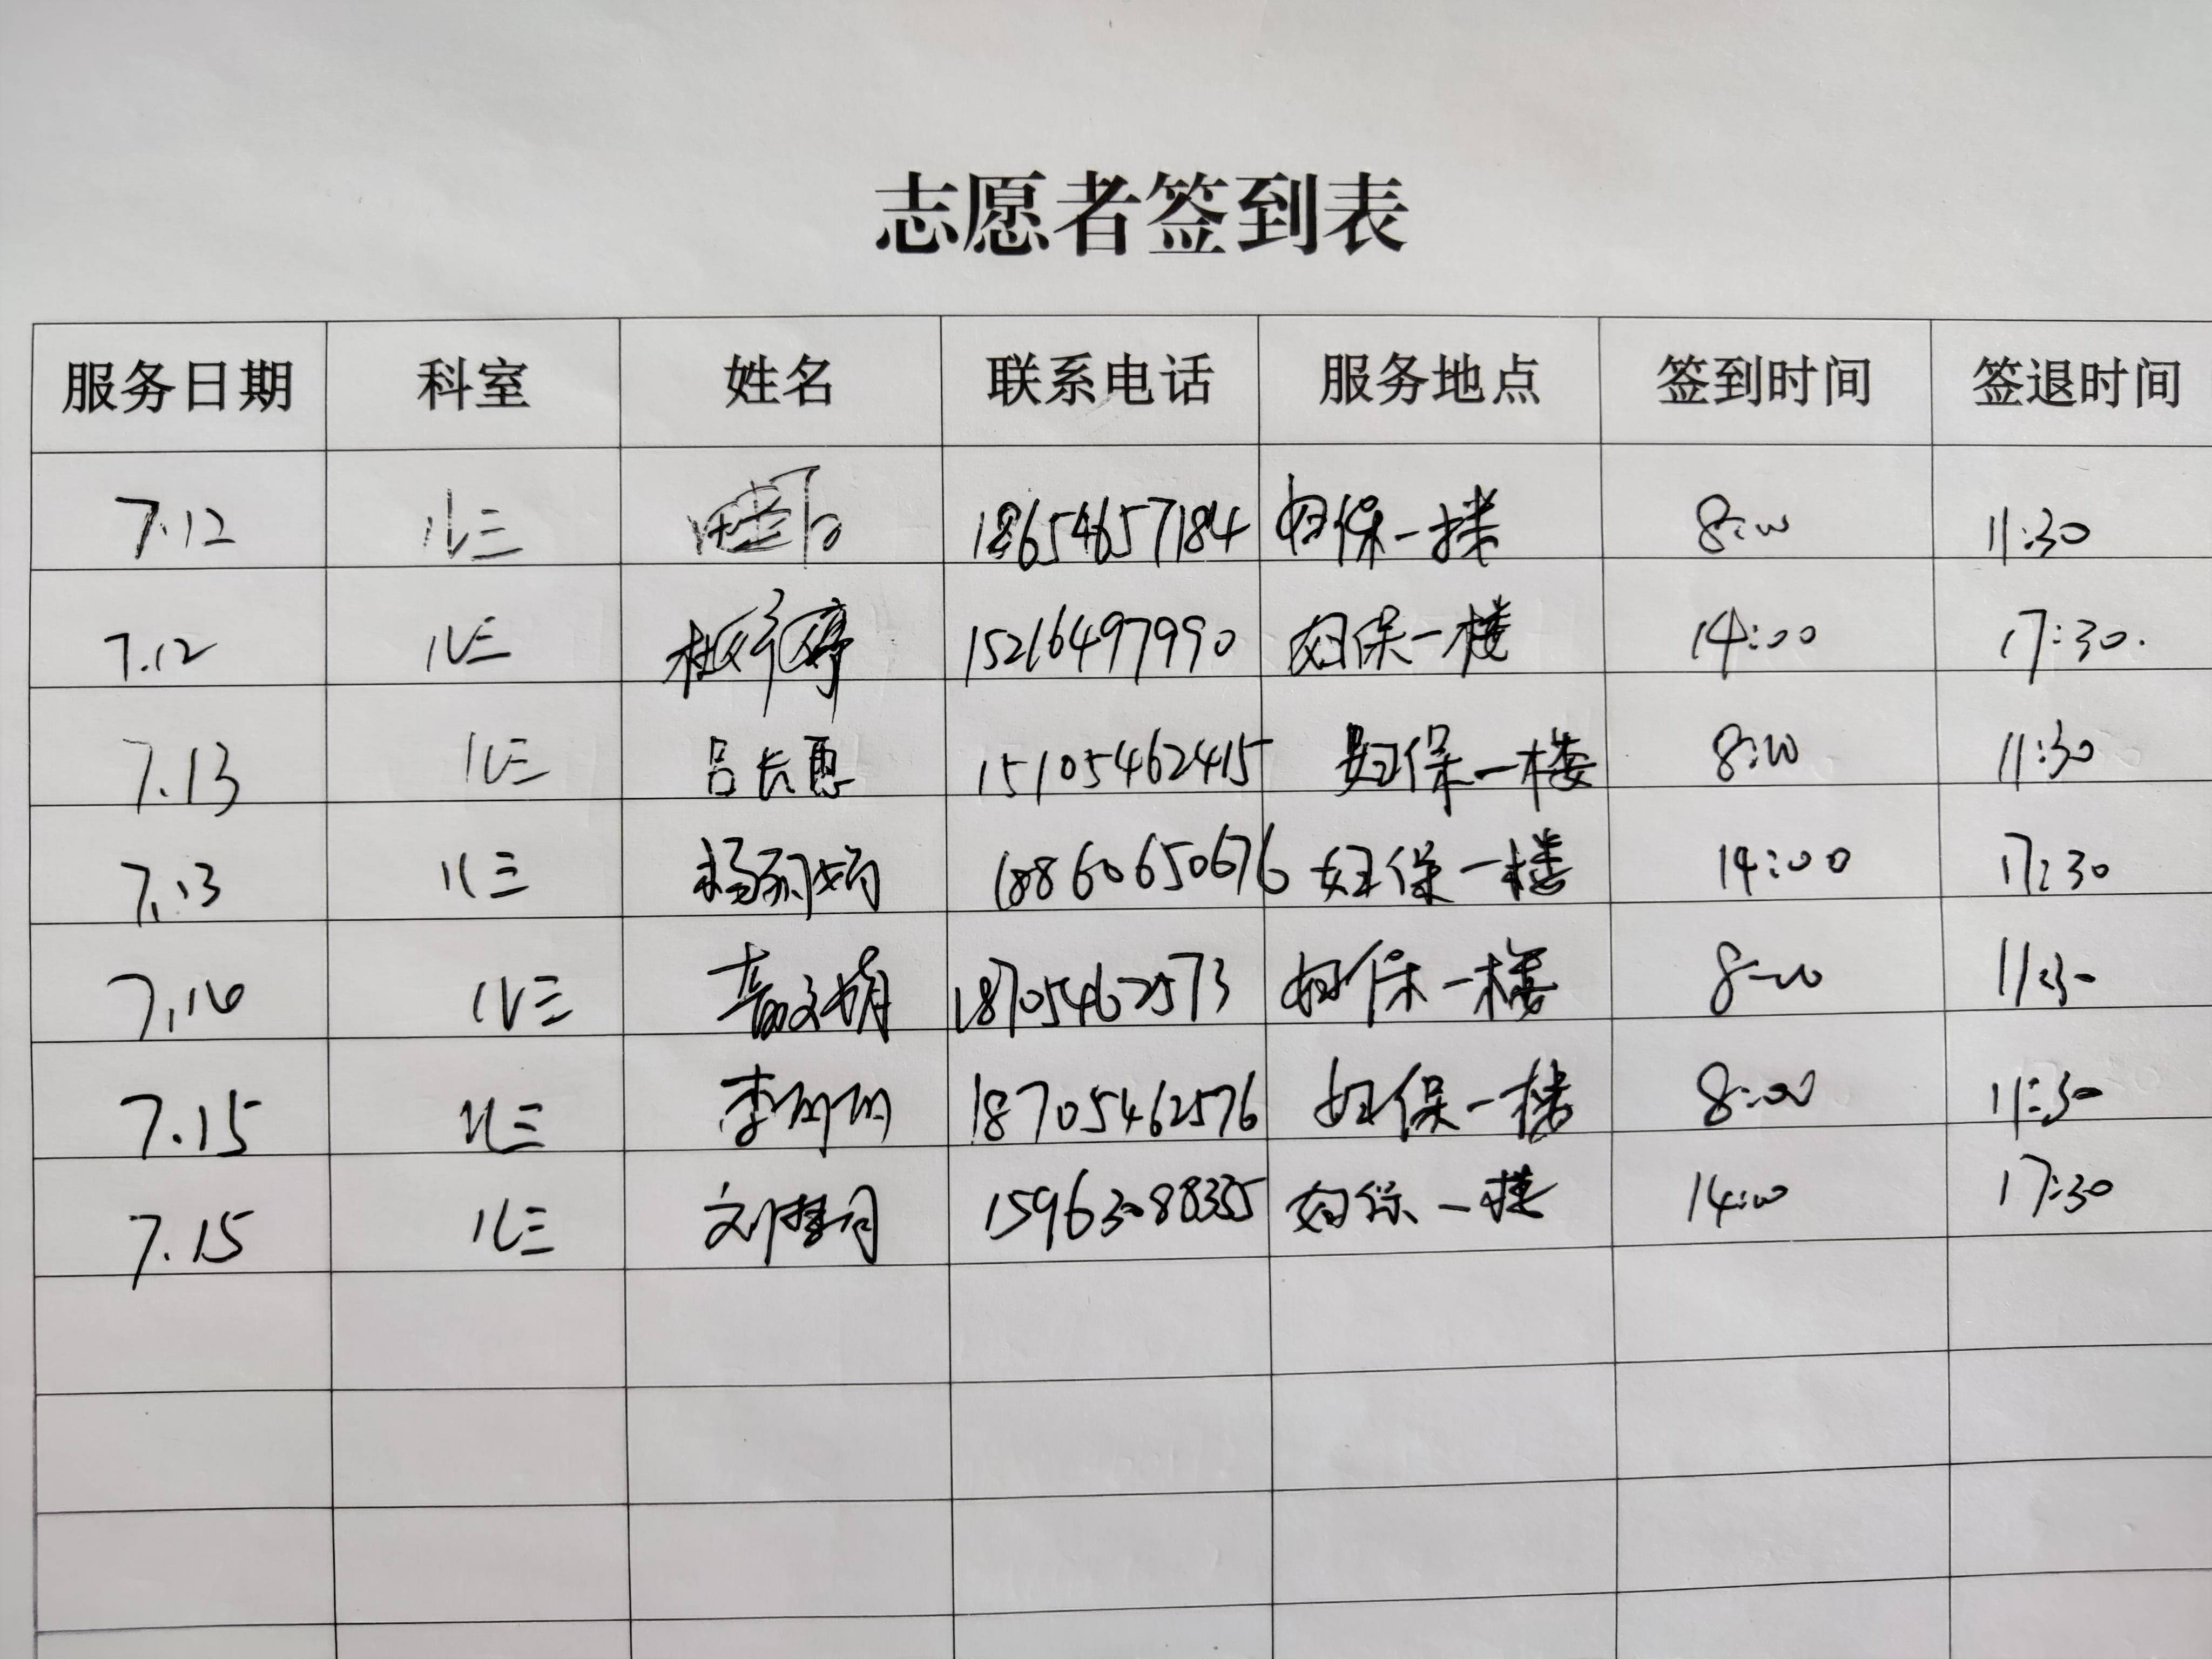 志愿者签到表
服务日期 科室 姓名 联系电话 服务地点 签到时间 签退时间
7.12 儿三 18654657184 妇保一楼 8:00 11:30
7.12 儿三 15216497990 妇保一楼 14:00 17:30.
7.13 儿三 吕长惠 15105462415 妇保一楼 8:00 11:30
7.13 儿三 杨 18860650676 妇保一楼 14:00 17:30
儿三 18705462573 妇保一楼 8:00 11:30
7.15 儿三 李 18705462576 妇保一楼 8:00 11:30
7.15 儿三 刘 15963088335 妇保一楼 14:00 17:30